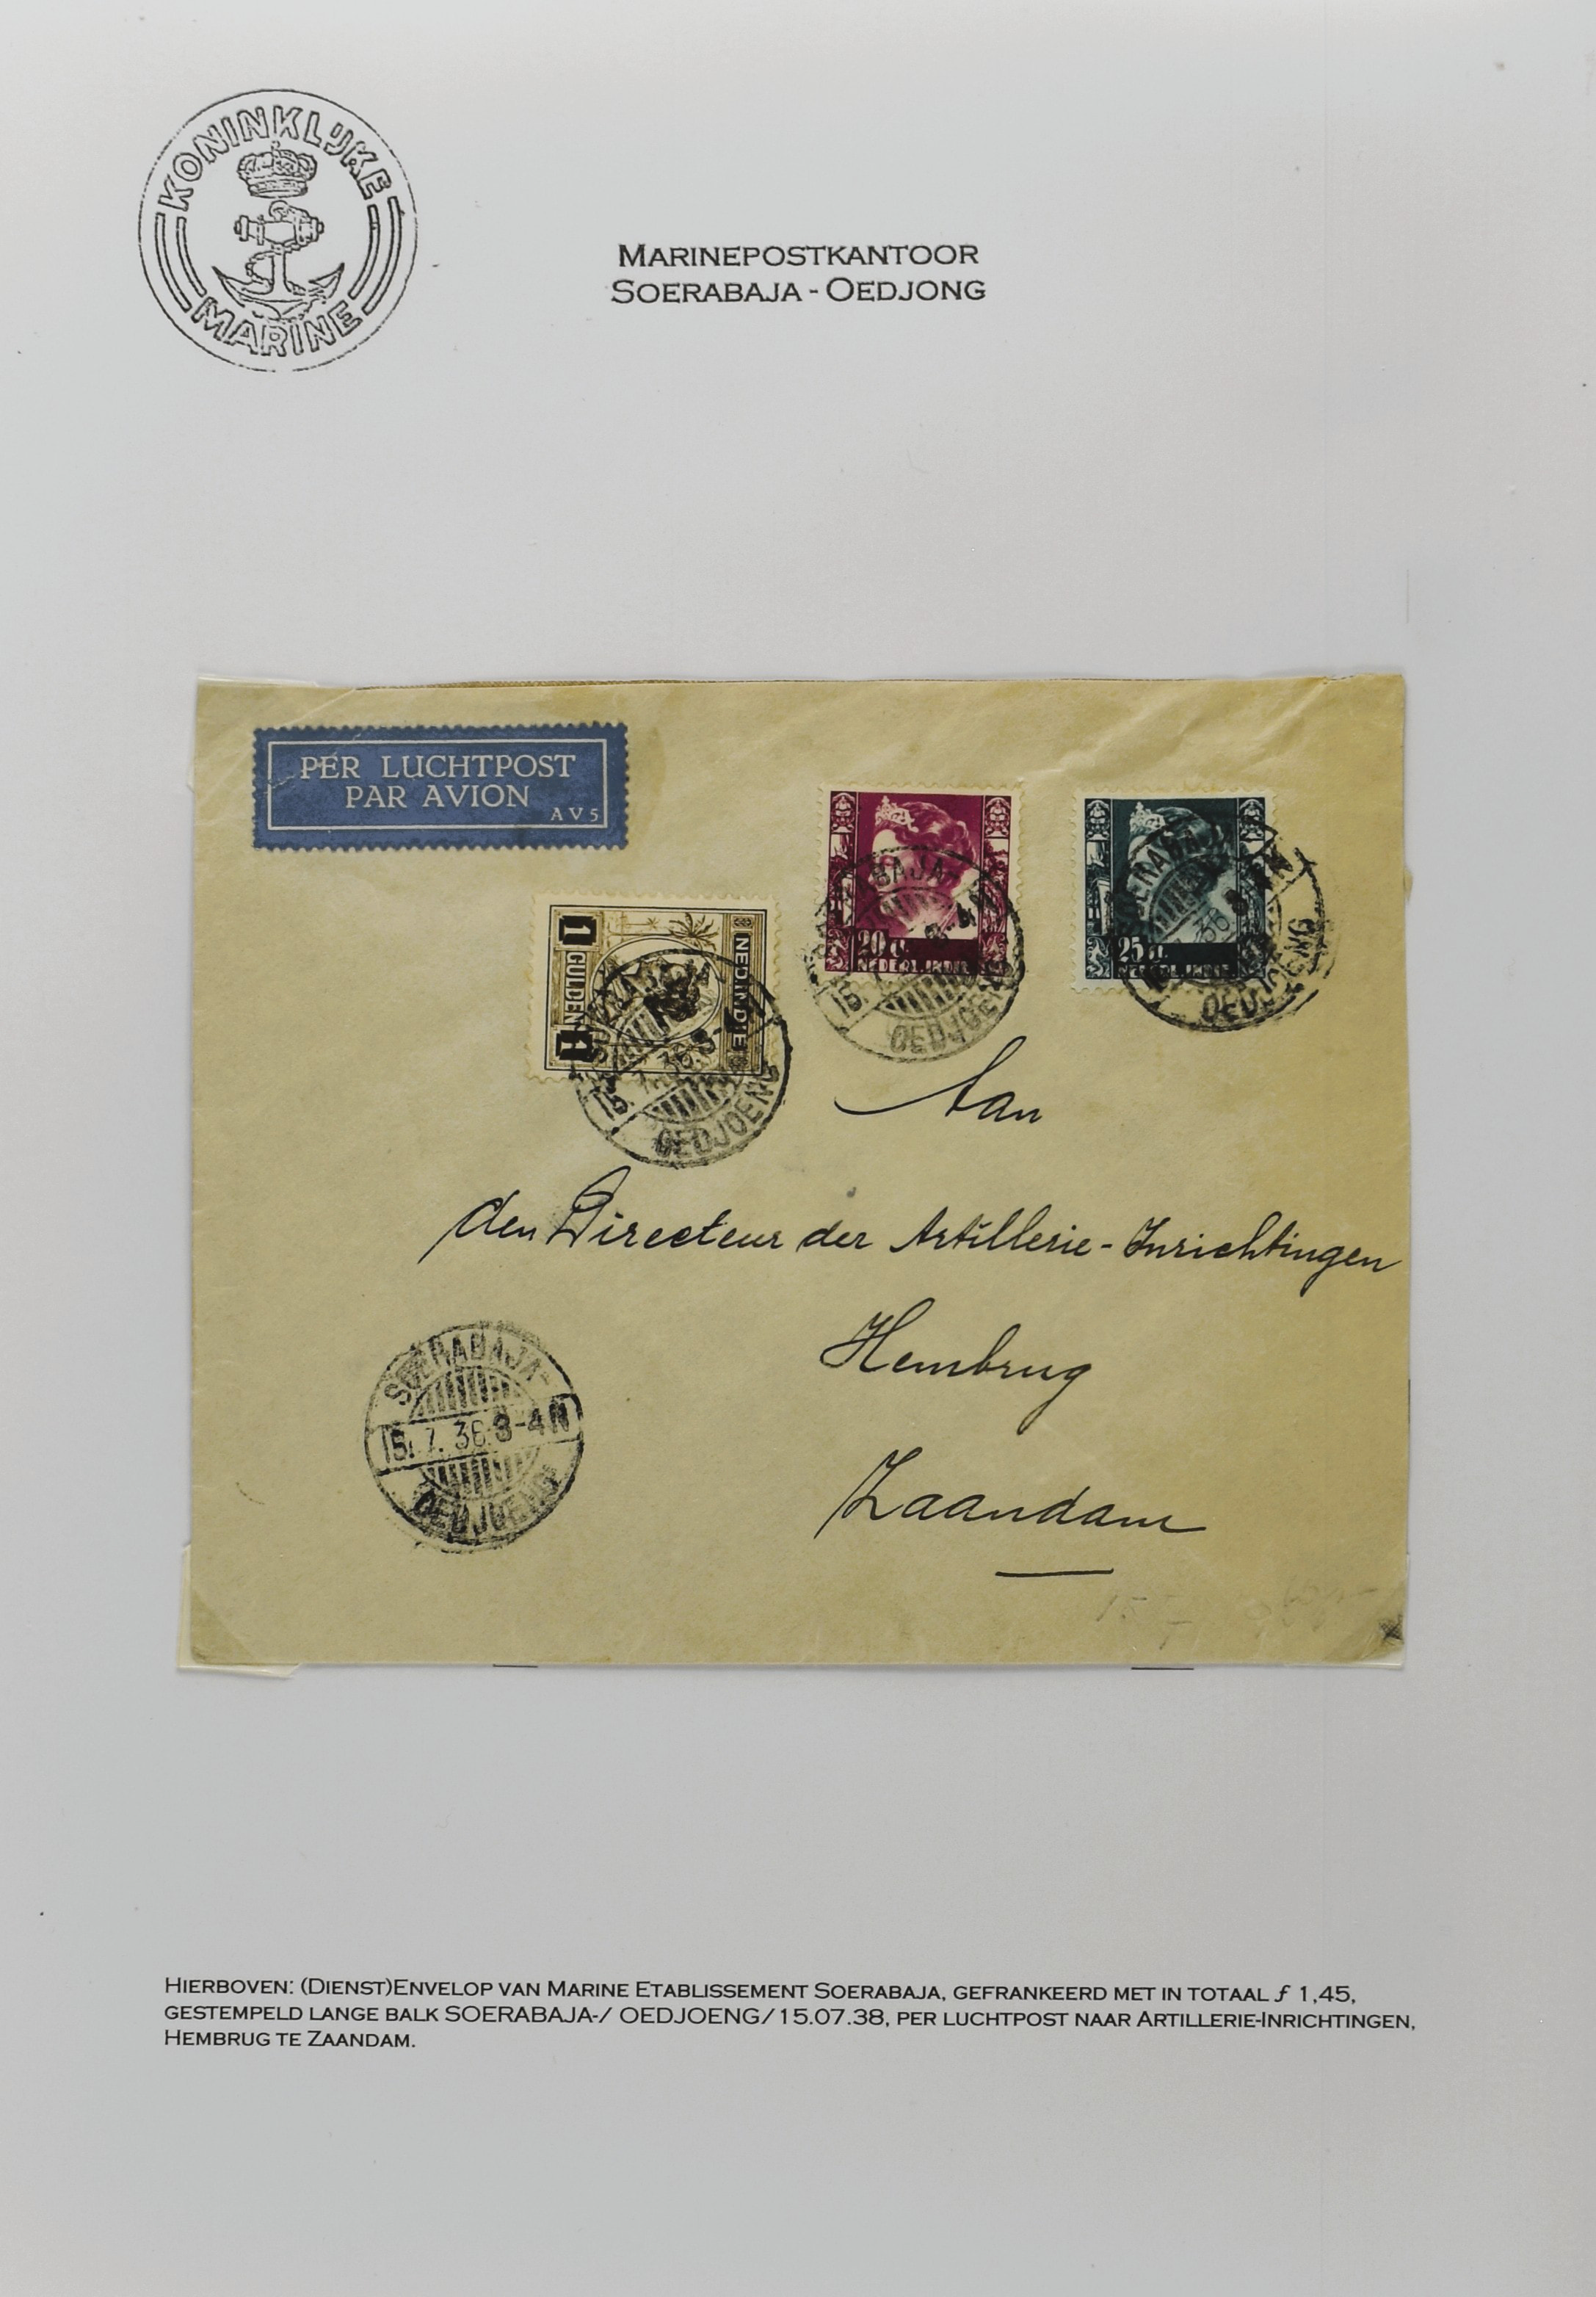 KONINKLIJKE
MARINE
MARINEPOSTKANTOOR
SOERABAJA - OEDJONG
PER LUCHTPOST
PAR AVION
AV5
20 c.
25 c.
NED. INDIE
1 GULDEN 1
SOERABAJA-
15. 7. 38. 3-4N
OEDJOENG
Aan
den Directeur der Artillerie-Inrichtingen
Hembrug
Zaandam
SOERABAJA-
15. 7. 38. 3-4N
OEDJOENG
HIERBOVEN: (DIENST)ENVELOP VAN MARINE ETABLISSEMENT SOERABAJA, GEFRANKEERD MET IN TOTAAL ƒ 1,45,
GESTEMPELD LANGE BALK SOERABAJA-/ OEDJOENG/15.07.38, PER LUCHTPOST NAAR ARTILLERIE-INRICHTINGEN,
HEMBRUG TE ZAANDAM.